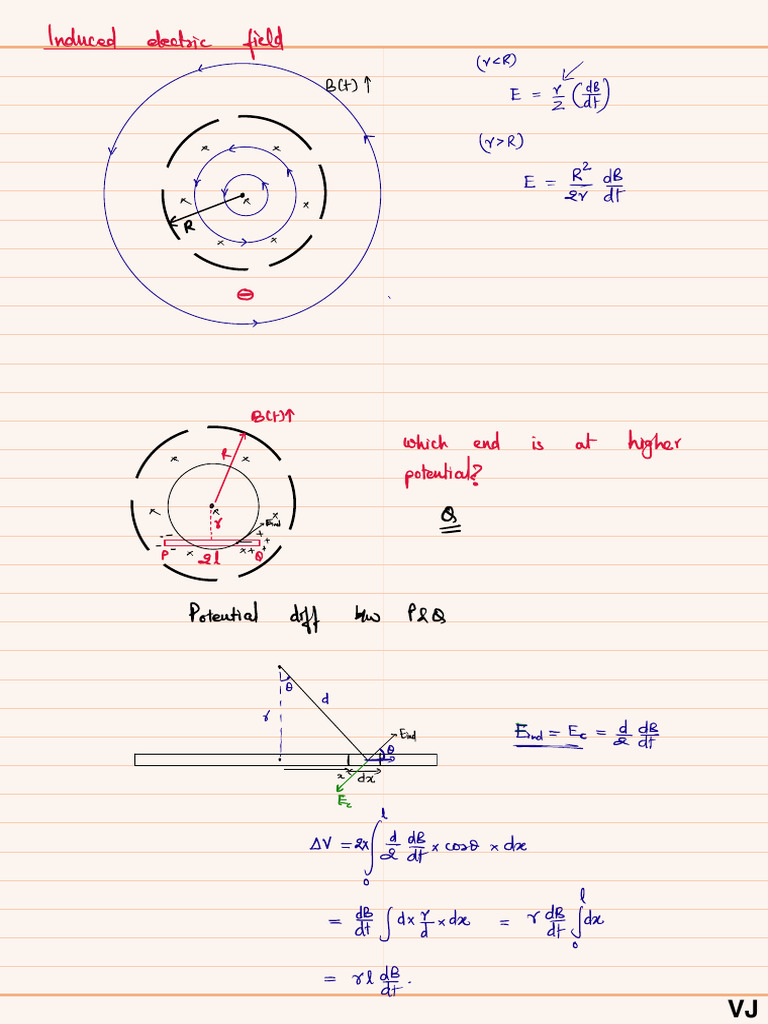 Induced electric field
B(t) ↑
(r<R)
E = r/2 (dB/dt)
(r>R)
E = R²/2r dB/dt
R
⊖
B(t) ↑
R
r
Eind
P
2l
Q
which end is at higher
potential?
Q
Potential diff b/w P & Q
θ
d
r
Eind
θ
x
dx
Ec
Eind = Ec = d/2 dB/dt
ΔV = 2x ∫₀ˡ d/2 dB/dt × cosθ × dx
= dB/dt ∫ d × r/d × dx = r dB/dt ∫₀ˡ dx
= r l dB/dt.
VJ